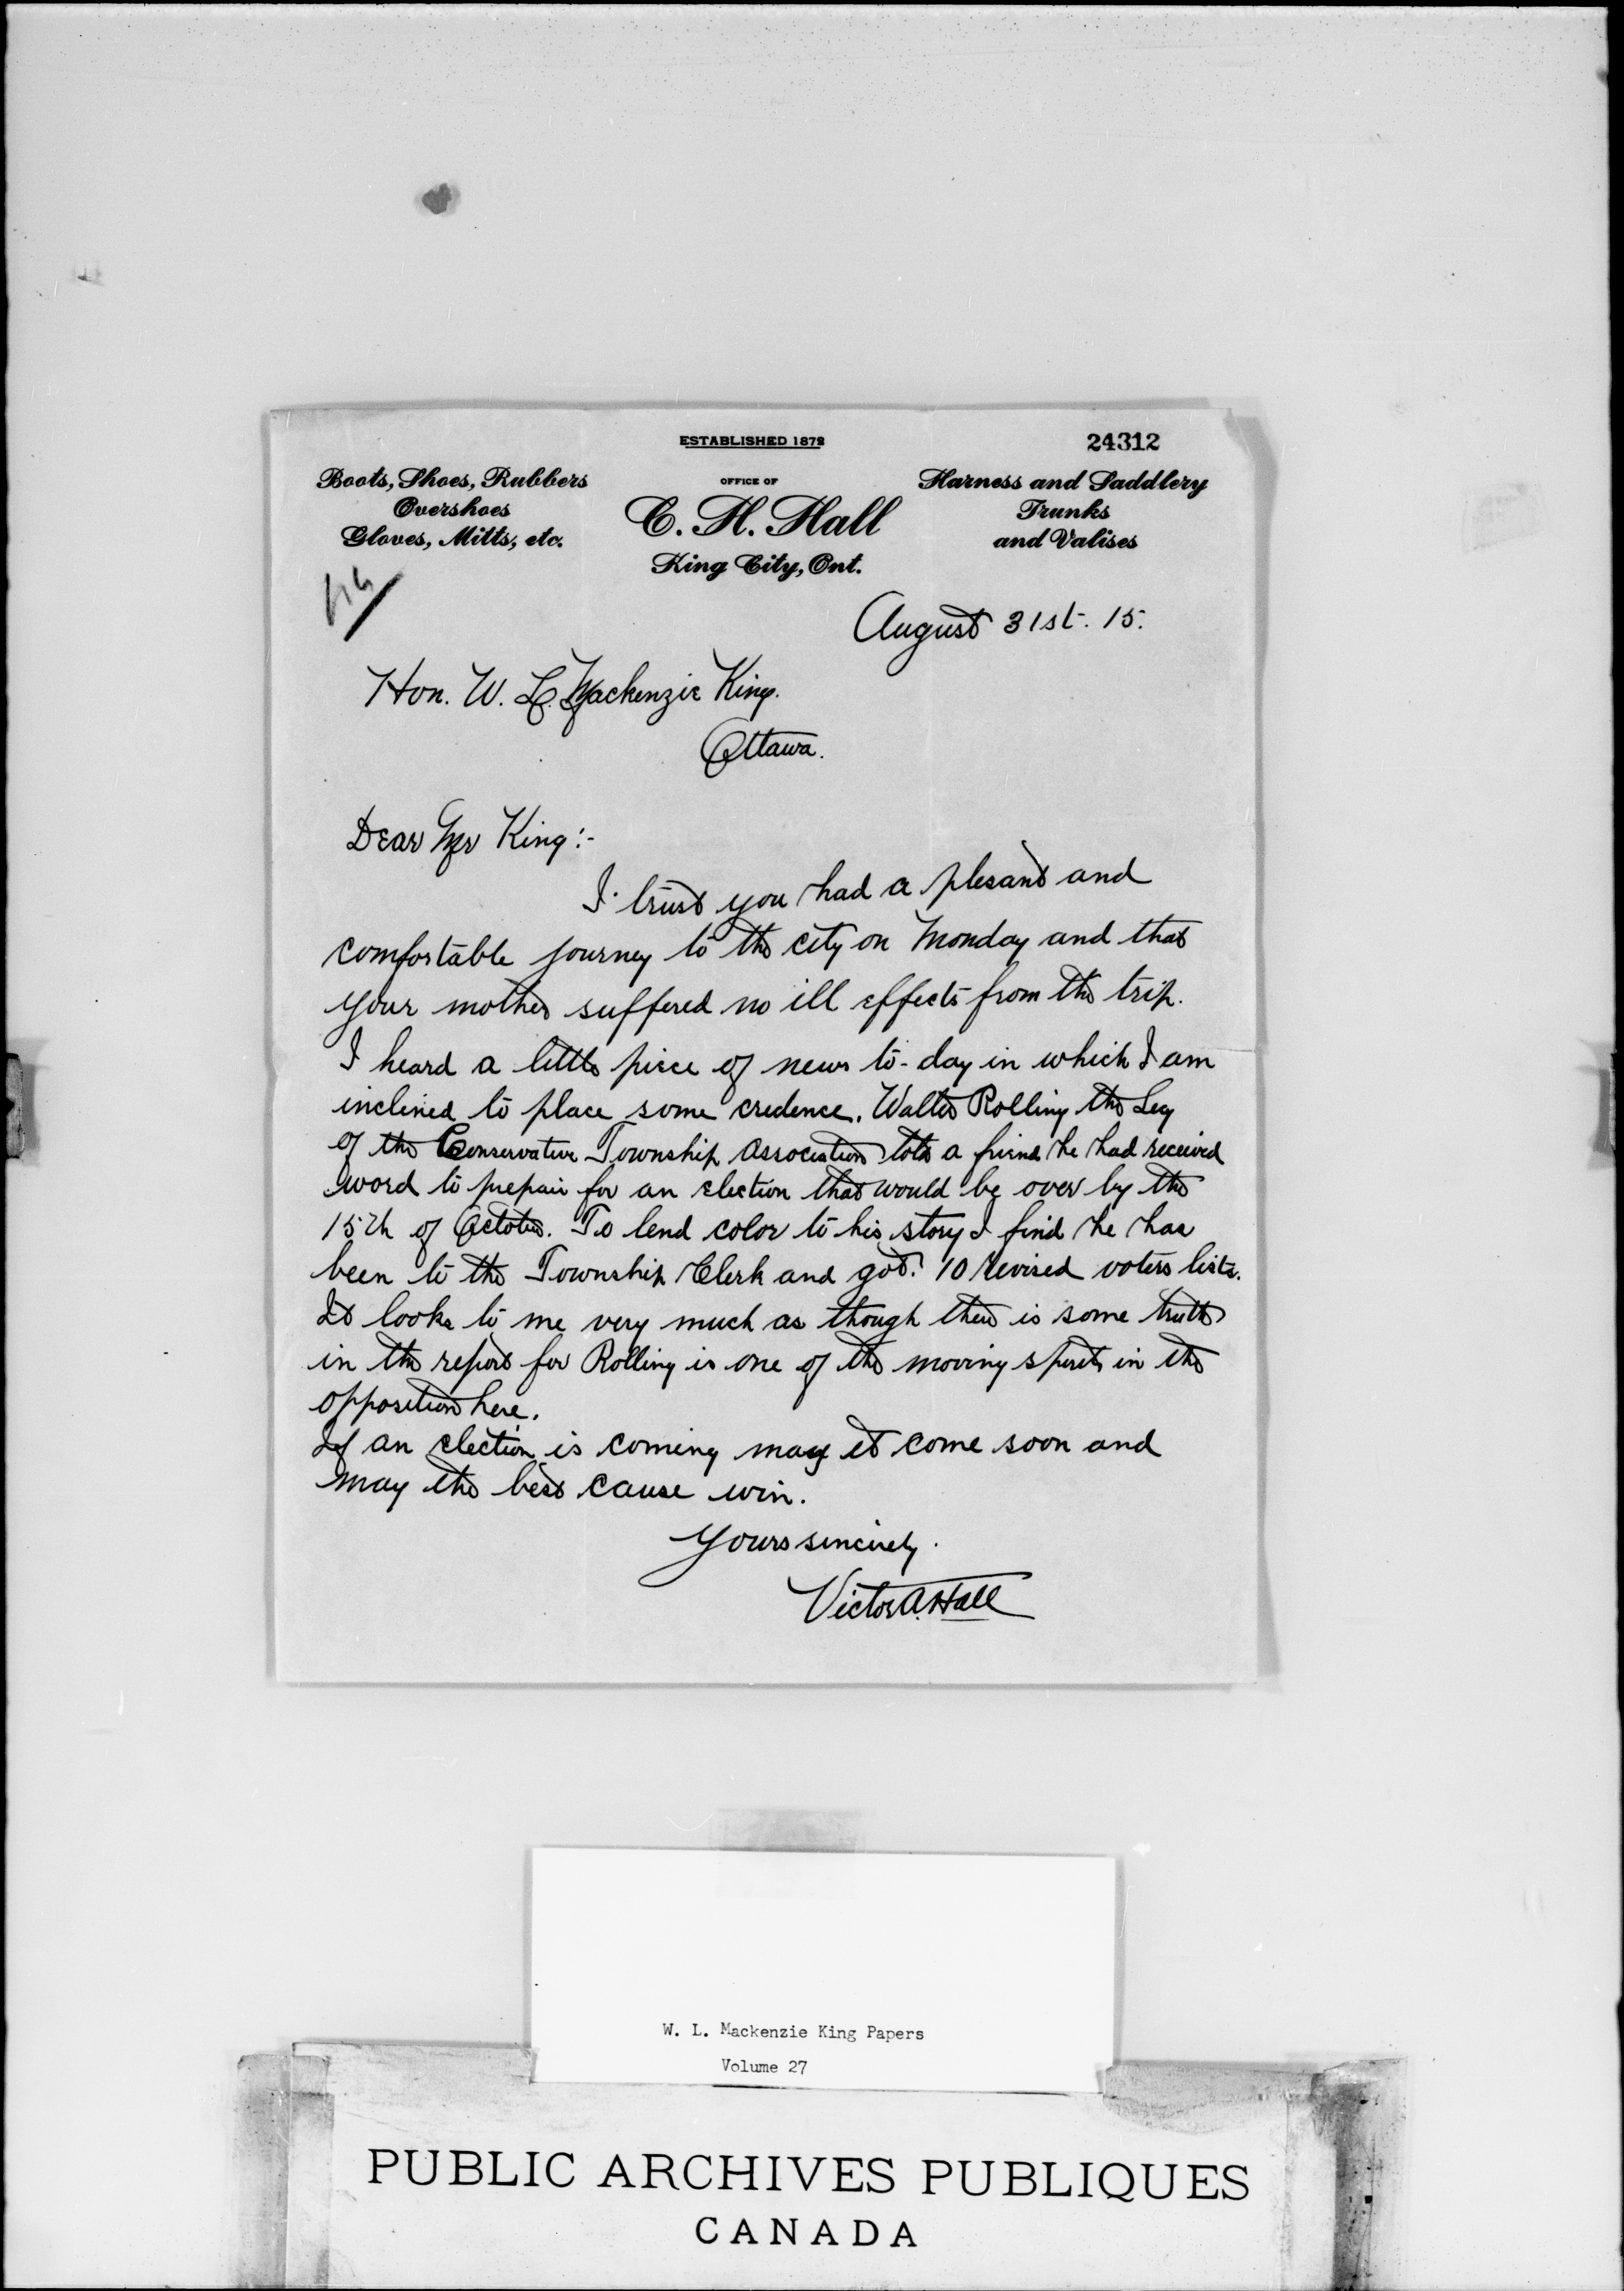 ESTABLISHED 1872
24312
Boots, Shoes, Rubbers
Overshoes
Gloves, Mitts, etc.
OFFICE OF
C. H. Hall
King City, Ont.
Harness and Saddlery
Trunks
and Valises
August 31st. 15.
Hon. W. L. Mackenzie King.
Ottawa.
Dear Mr King:-
I trust you had a plesant and
comfortable journey to the city on Monday and that
your mother suffered no ill effects from the trip.
I heard a little piece of news to-day in which I am
inclined to place some credence. Walter Rolling the Sey
of the Conservative Township Association told a friend he had received
word to prepair for an election that would be over by the
15th of October. To lend color to his story I find he has
been to the Township Clerk and got 10 revised voters lists.
It looks to me very much as though there is some truth
in the report for Rolling is one of the moving spirits in the
opposition here.
If an election is coming may it come soon and
may the best cause win.
Yours sincerely.
Victor A. Hall
W. L. Mackenzie King Papers
Volume 27
PUBLIC ARCHIVES PUBLIQUES
CANADA